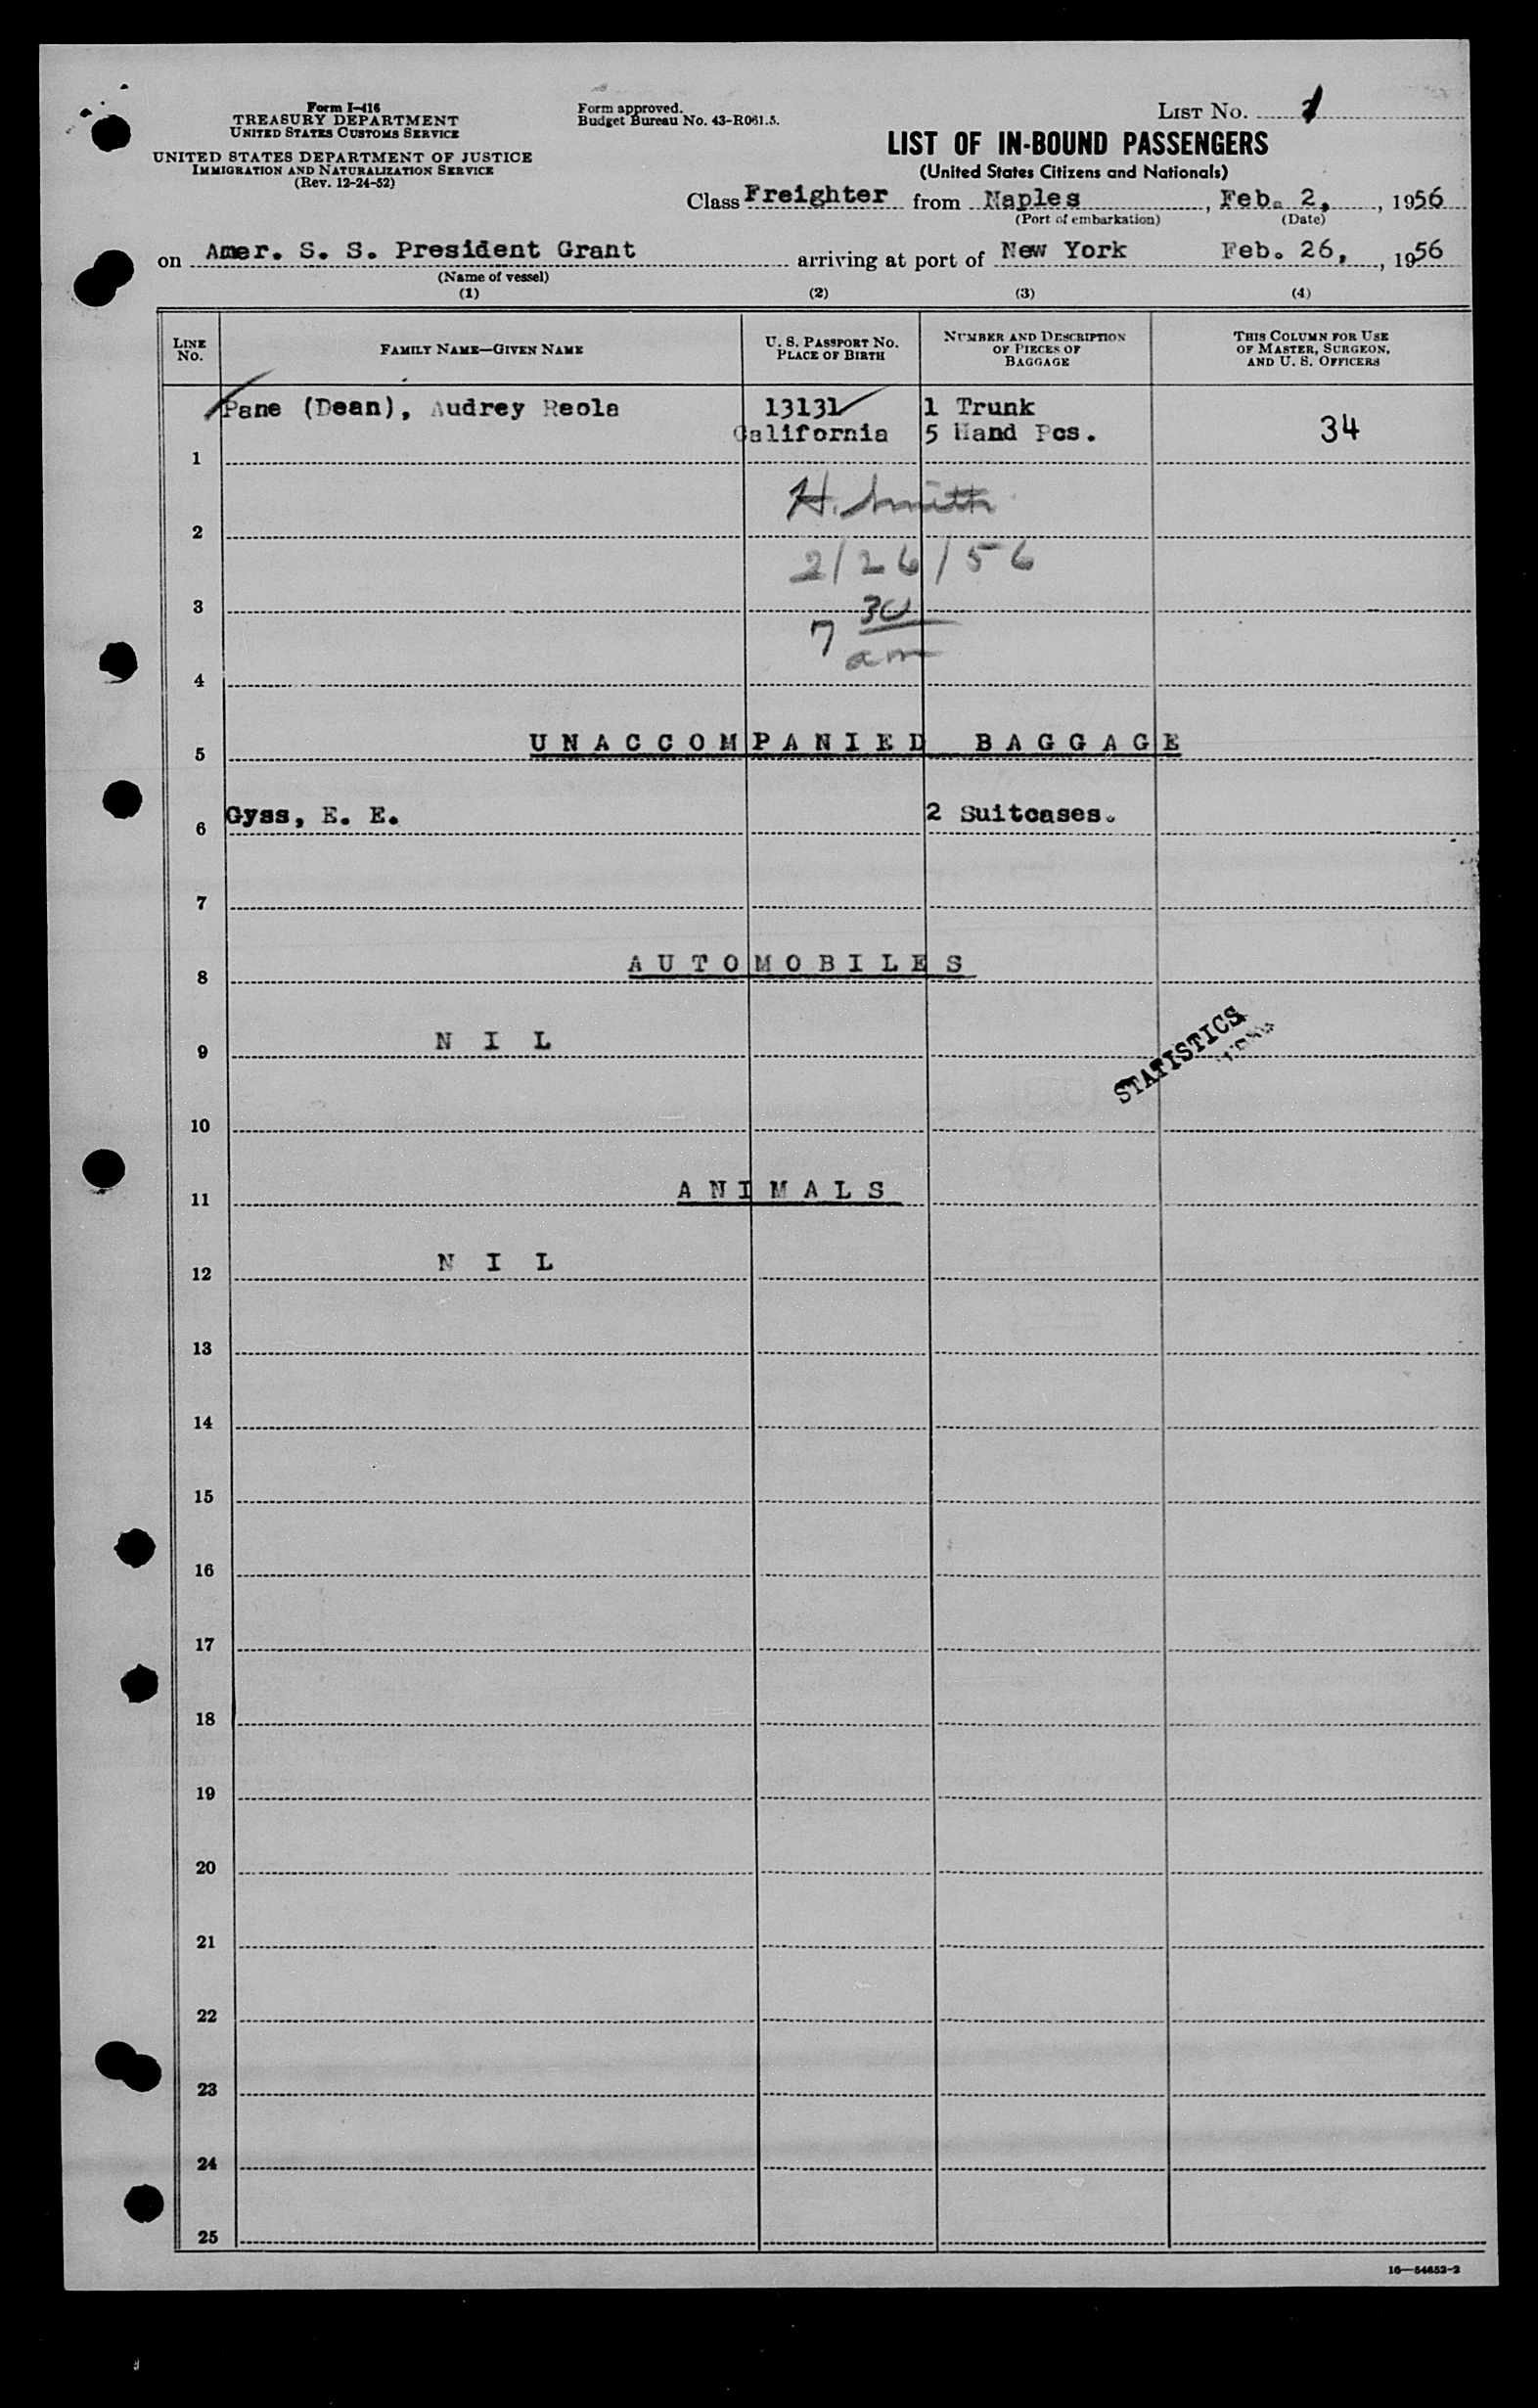 Form I-416
TREASURY DEPARTMENT
UNITED STATES CUSTOMS SERVICE
UNITED STATES DEPARTMENT OF JUSTICE
IMMIGRATION AND NATURALIZATION SERVICE
(Rev. 12-24-52)
Form approved.
Budget Bureau No. 43-R061.5.
LIST NO. 1
LIST OF IN-BOUND PASSENGERS
(United States Citizens and Nationals)
Class Freighter from Naples, Feb. 2, 1956
(Port of embarkation) (Date)
on Amer. S. S. President Grant arriving at port of New York Feb. 26, 1956
(Name of vessel)
(1) (2) (3) (4)
LINE NO. FAMILY NAME—GIVEN NAME U. S. PASSPORT NO. PLACE OF BIRTH NUMBER AND DESCRIPTION OF PIECES OF BAGGAGE THIS COLUMN FOR USE OF MASTER, SURGEON, AND U. S. OFFICERS
Pane (Dean), Audrey Reola 13131 1 Trunk
1 California 5 Hand Pcs. 34
H. Smith
2
2/26/56
3 30
7 am
4
5 UNACCOMPANIED BAGGAGE
6 Gyss, E. E. 2 Suitcases.
7
8 AUTOMOBILES
9 NIL
STATISTICS
10
11 ANIMALS
12 NIL
13
14
15
16
17
18
19
20
21
22
23
24
25
16—54652-2